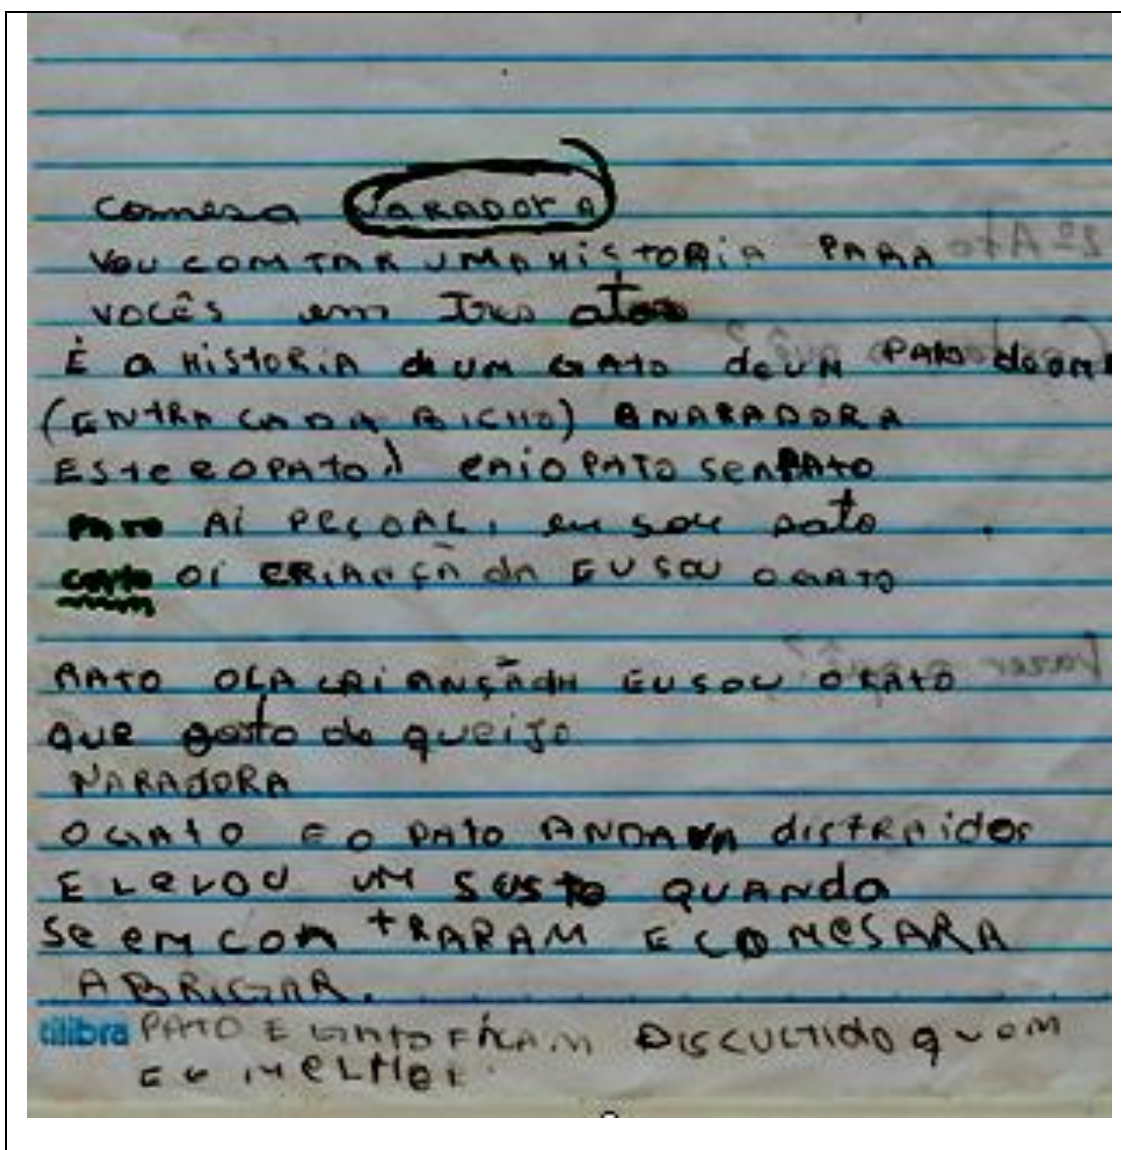 Comesa NARADORA
VOU COMTAR UMA HISTORIA PARA
VOCÊS em Tres atos
É a HISTORIA de UM GATO de UM PATO
(ENTRA CADA BICHO) ANARADORA
ESte e OPAto
PATO Ai PESOAL, eu sou pato
gato Oi CRIANÇADA EU SOU O GATO
RATO OLA CRIANÇADA EU SOU O RATO
QUE gosto de queijo
NARADORA
O GATO E O PATO ANDAVA distRaidos
E LeVOU UM SUSTO QUANDO
Se eM COM tRARAM E COMeSARA
A BRIGAR.
tilibra PATO E GATO FICAM DISCULTIdO QUOM
E O MeLHeR.